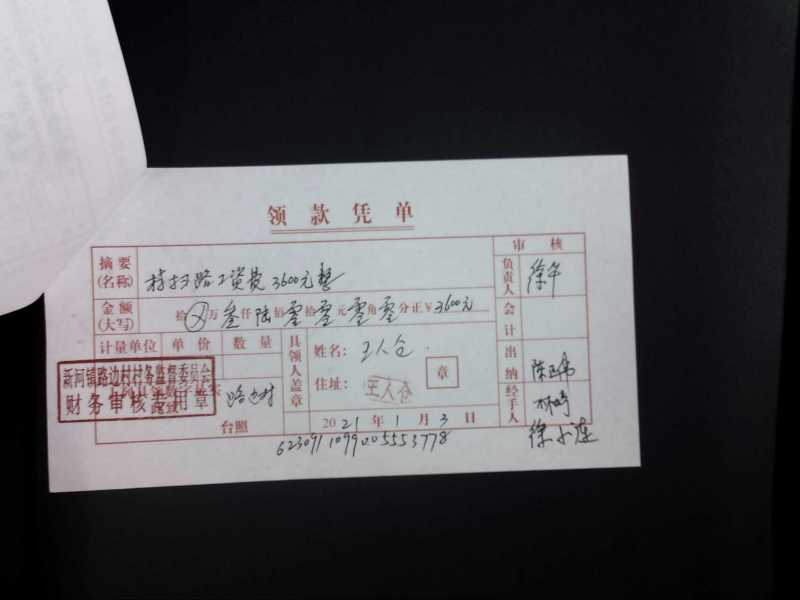 领款凭单
摘要(名称) 扫路工资费3600元整
审核
负责人 徐华
金额(大写) 拾万叁仟陆佰零拾零元零角零分正¥3600元
会计
计量单位 单价 数量
具领人盖章
姓名:王人仓
住址:
王人仓
章
出纳 陈
新河镇路边村村务监督委员会
财务审核专用章
路边村
台照
2021年1月3日
经手人
徐小莲
6230911099005553778